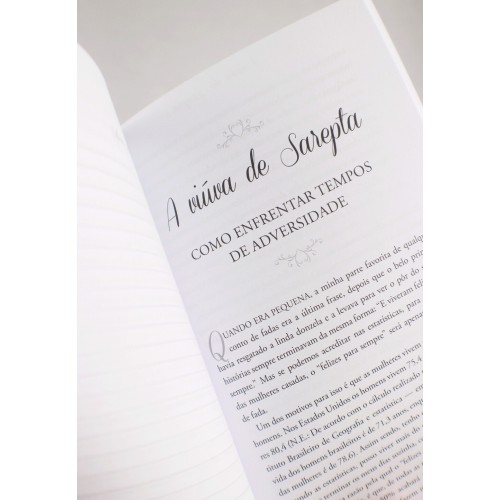 A viúva de Sarepta
COMO ENFRENTAR TEMPOS
DE ADVERSIDADE
QUANDO ERA PEQUENA, a minha parte favorita de qualquer
conto de fadas era a última frase, depois que o belo
havia resgatado a linda donzela e a levava para ver o pôr do
histórias sempre terminavam da mesma forma: "E viveram
sempre." Mas se podemos acreditar nas estatísticas, para
das mulheres casadas, o "felizes para sempre" será
de fada.
Um dos motivos para isso é que as mulheres vivem
homens. Nos Estados Unidos os homens vivem 75,4
res 80,4 (N.E.: De acordo com o cálculo realizado
tituto Brasileiro de Geografia e estatística —
vida dos homens brasileiros é de 71,3 anos,
das mulheres é de 78,6). Assim sendo, tenho
estatisticamente, posso viver mais do
de terminar os meus dias sozinha,